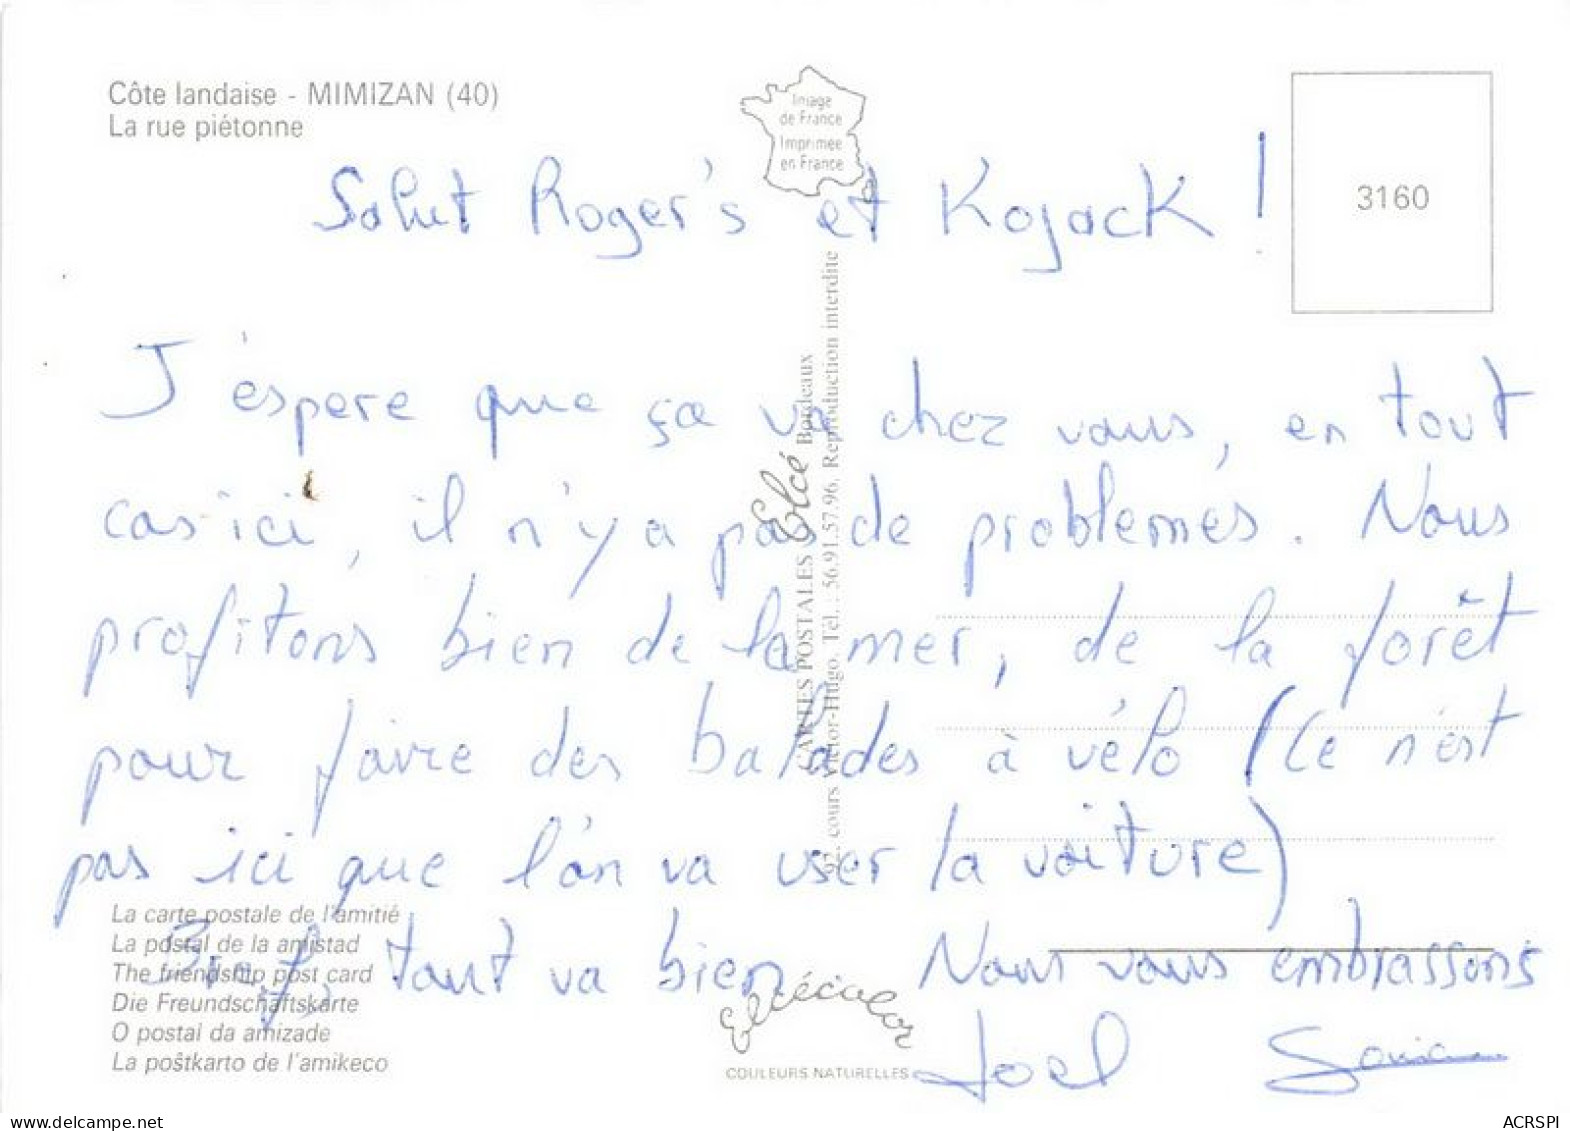 Côte landaise - MIMIZAN (40)
La rue piétonne
Image
de France
Imprimée
en France
3160
Salut Roger's et Kojack !
J'éspere que ça va chez vous, en tout
cas ici, il n'y a pas de problemes. Nous
profitons bien de la mer, de la forêt
pour faire des balades à vélo (Ce n'est
pas ici que l'on va user la voiture)
Bref, tout va bien Nous vous embrassons
Joel Sonia
CARTES POSTALES Elcé Bordeaux
cours Victor-Hugo. Tél. : 56.91.57.96, Reproduction interdite
La carte postale de l'amitié
La postal de la amistad
The friendship post card
Die Freundschaftskarte
O postal da amizade
La poŝtkarto de l'amikeco
Elcécolor
COULEURS NATURELLES
delcampe.net
ACRSPI